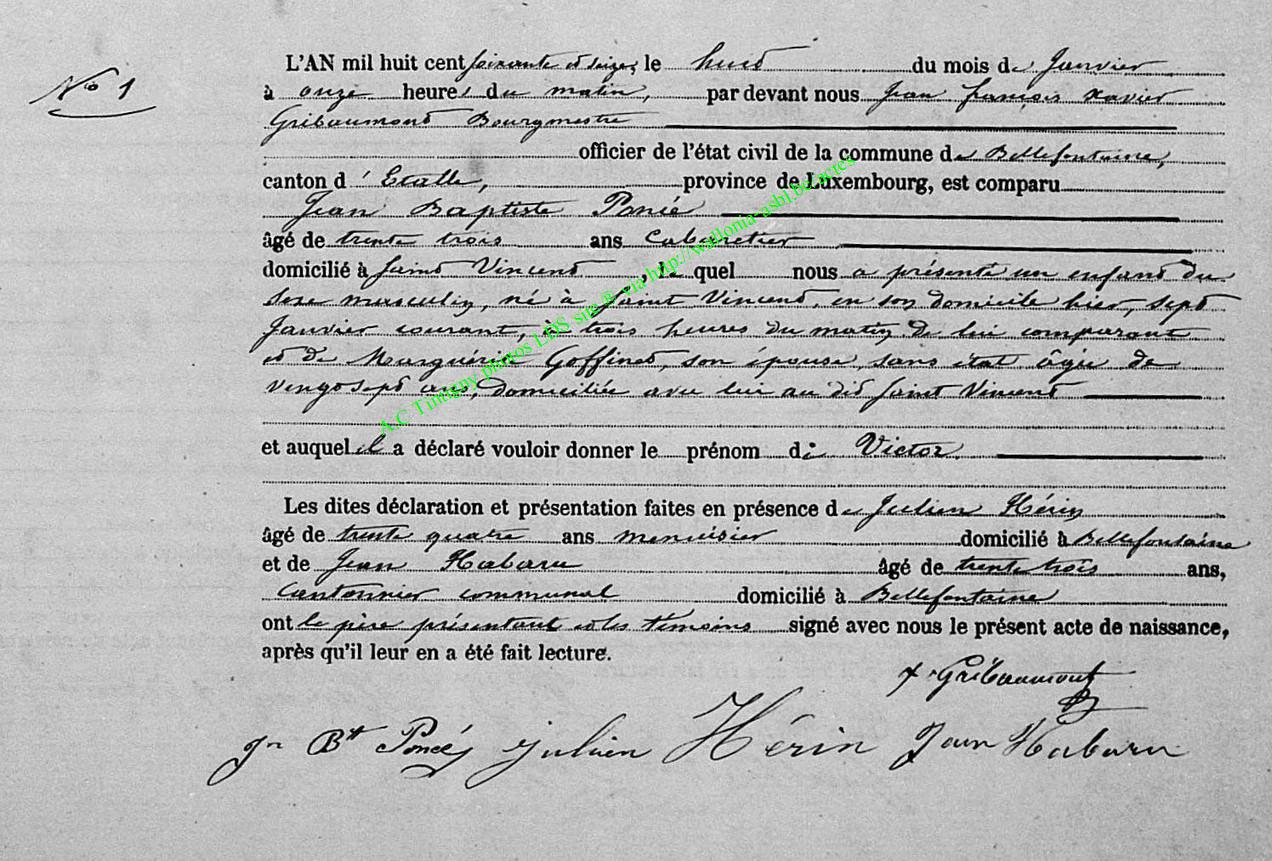 N° 1
L'AN mil huit cent soixante et seize, le huit du mois de Janvier
à onze heures du matin, par devant nous Jean françois Xavier
Gribaumont Bourgmestre
officier de l'état civil de la commune de Bellefontaine,
canton d'Etalle, province de Luxembourg, est comparu
Jean Baptiste Poncé
âgé de trente trois ans Cabaretier
domicilié à Saint Vincent, le quel nous a présenté un enfant du
sexe masculin, né à Saint Vincent, en son domicile hier, sept
Janvier courant, à trois heures du matin de lui comparant
et de Marguérite Goffinet, son épouse, sans état âgée de
vingt sept ans, domiciliée avec lui au dit Saint Vincent
et auquel il a déclaré vouloir donner le prénom de Victor.
Les dites déclaration et présentation faites en présence de Julien Hérin
âgé de trente quatre ans menuisier domicilié à Bellefontaine
et de Jean Habaru âgé de trente trois ans,
Cantonnier communal domicilié à Bellefontaine
ont le père présentant et les témoins signé avec nous le présent acte de naissance,
après qu'il leur en a été fait lecture.
x. Gribaumont
Jn Bte Poncé Julien Hérin Jean Habaru
A.C Tintigny photos LDS sur via http://wallonia-asbl.be/actes